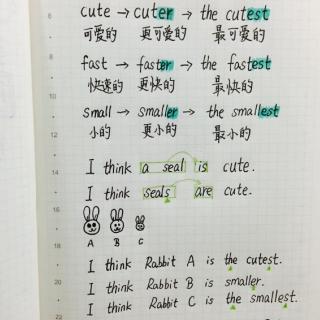 6
cute → cuter → the cutest
可爱的 更可爱的 最可爱的
8
fast → faster → the fastest
快速的 更快的 最快的
10
small → smaller → the smallest
12
小的 更小的 最小的
14
I think a seal is cute.
I think seals are cute.
16
A B C
18
I think Rabbit A is the cutest.
20
I think Rabbit B is smaller.
I think Rabbit C is the smallest.
22